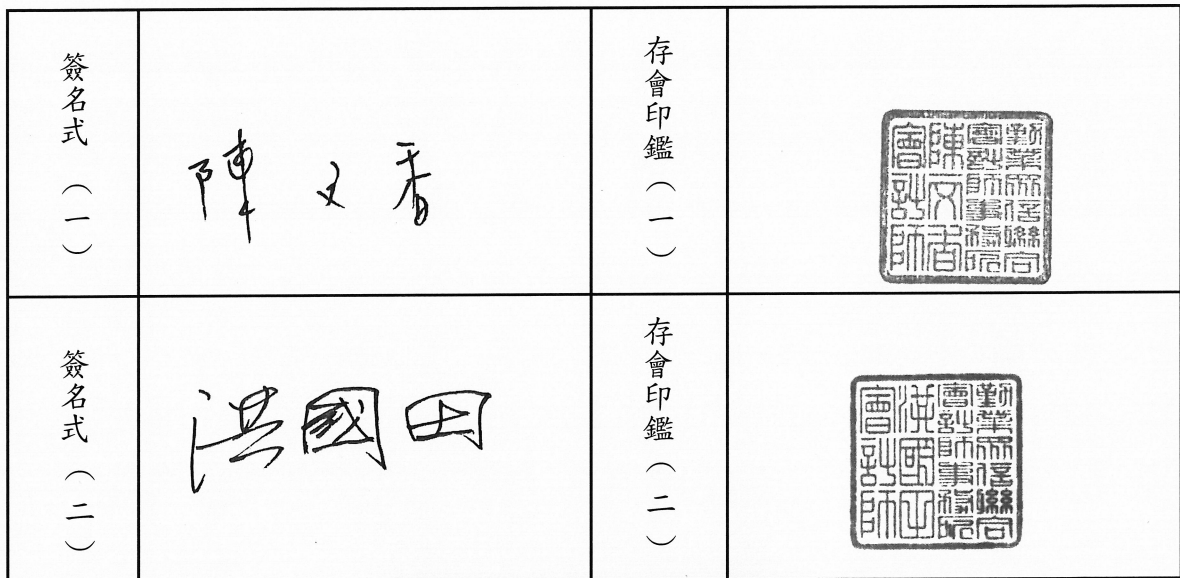 簽名式（一）
陳文香
存會印鑑（一）
勤業眾信聯合
會計師事務所
陳文香
會計師
簽名式（二）
洪國田
存會印鑑（二）
勤業眾信聯合
會計師事務所
洪國田
會計師